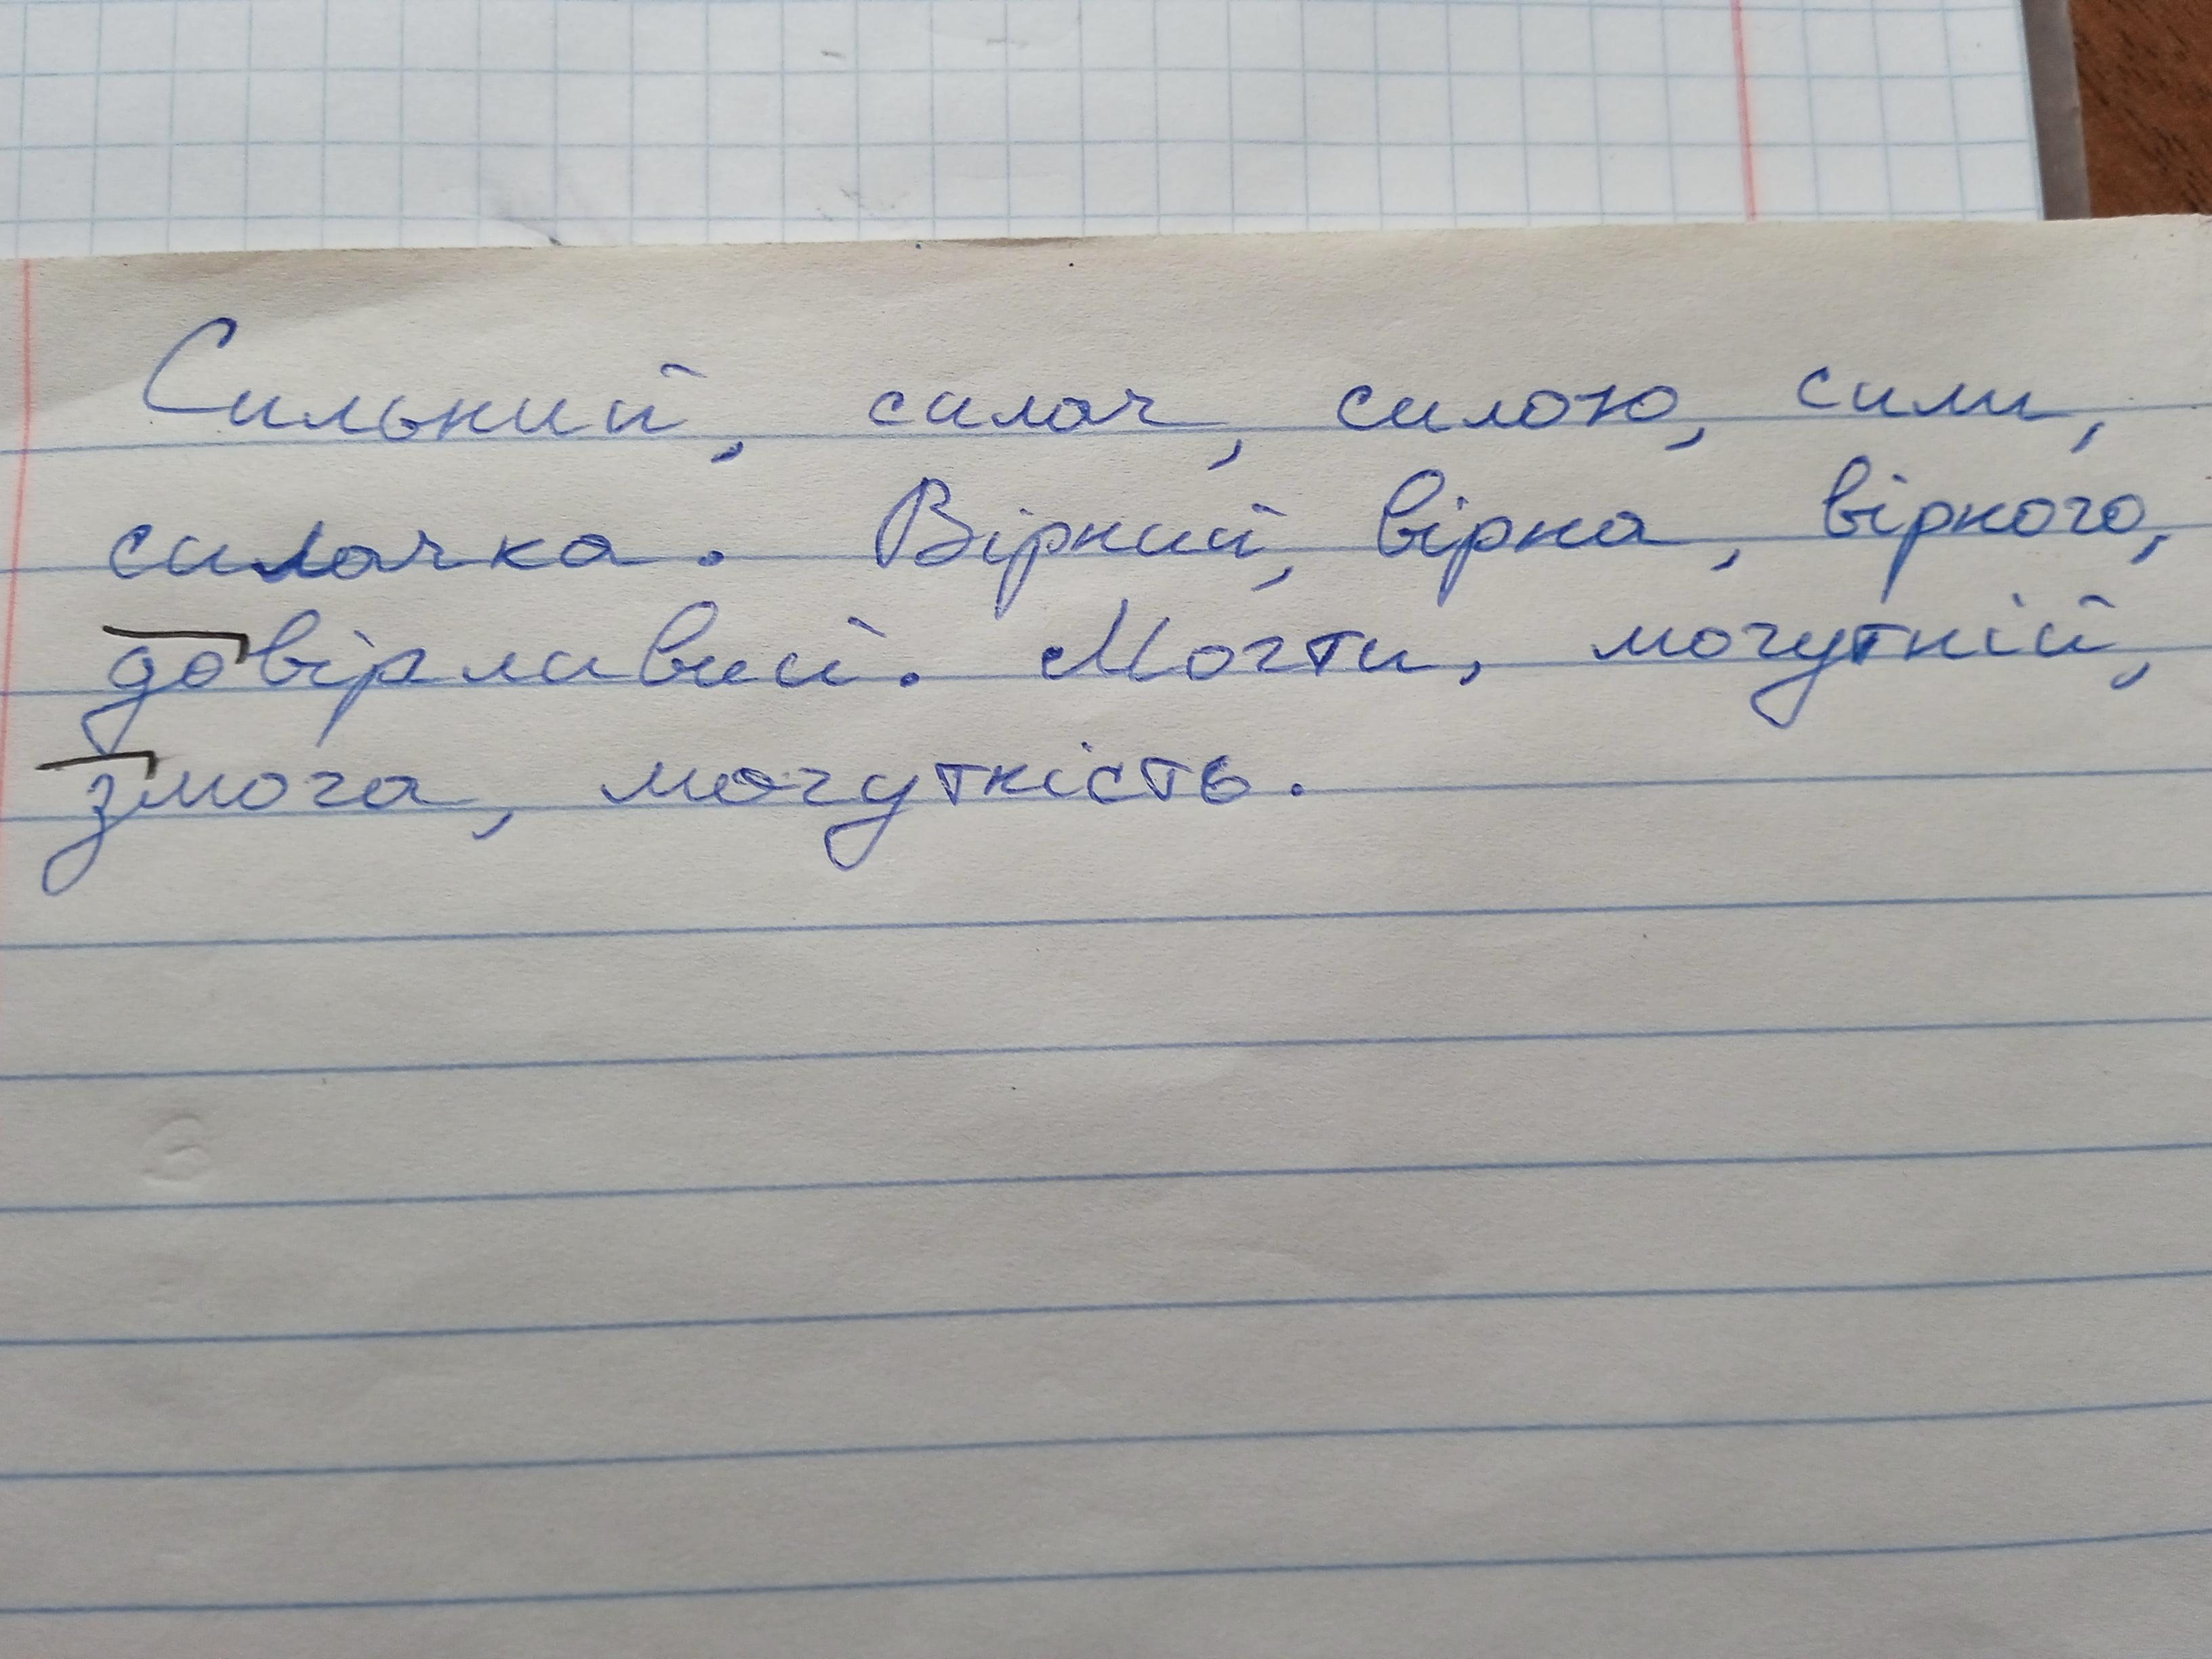 Сильний, силач, силою, сили,
силачка. Вірний, вірна, вірного,
довірливий. Могти, могутній,
змога, могутність.